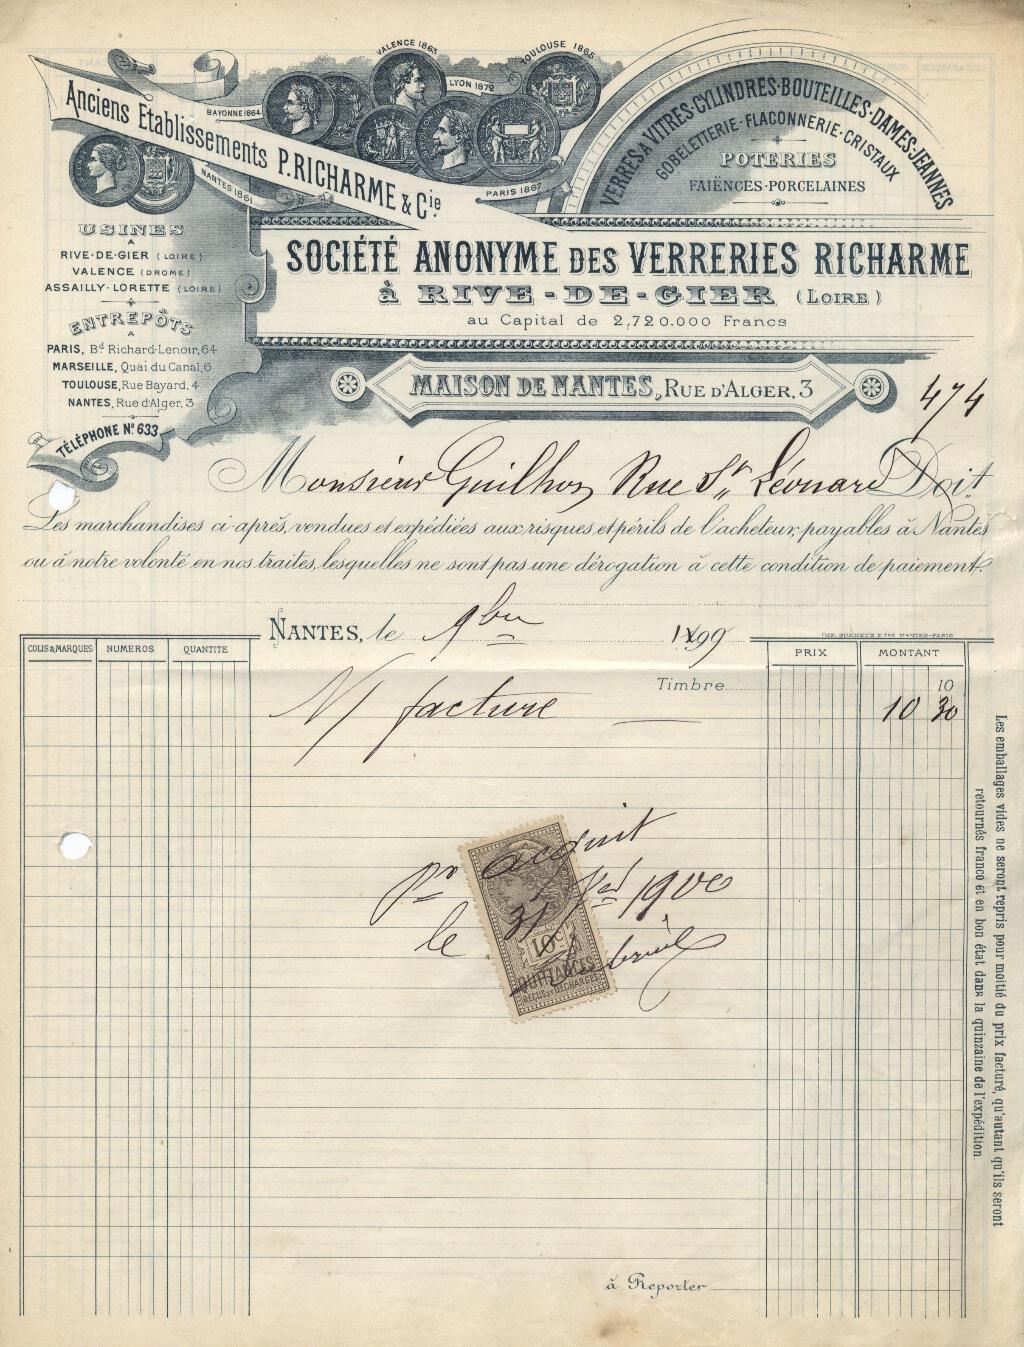 Anciens Etablissements P. RICHARME & Cie.
BAYONNE 1864
VALENCE 1863
LYON 1872
TOULOUSE 1865
NANTES 1861
PARIS 1867
VERRES A VITRES·CYLINDRES·BOUTEILLES·DAMES-JEANNES
GOBELETTERIE·FLACONNERIE·CRISTAUX
POTERIES
FAÏENCES·PORCELAINES
USINES
A
RIVE·DE·GIER (LOIRE)
VALENCE (DROME)
ASSAILLY·LORETTE (LOIRE)
ENTREPÔTS
A
PARIS, Bd Richard-Lenoir, 64
MARSEILLE, Quai du Canal, 6
TOULOUSE, Rue Bayard, 4
NANTES, Rue d'Alger, 3
TÉLÉPHONE No 633
SOCIÉTÉ ANONYME DES VERRERIES RICHARME
à RIVE-DE-GIER (LOIRE)
au Capital de 2,720.000 Francs
MAISON DE NANTES, RUE D'ALGER, 3
474
Monsieur Guilhon Rue St Léonard Doit
Les marchandises ci-après, vendues et expédiées aux risques et périls de l'acheteur, payables à Nantes
ou à notre volonté en nos traites, lesquelles ne sont pas une dérogation à cette condition de paiement.
NANTES, le 9bre 1899
COLIS & MARQUES NUMEROS QUANTITE PRIX MONTANT
Timbre 10
N/ facture 10 30
pr acquit
le 31 1900
10c
QUITTANCES
REÇUS ET DÉCHARGES
à Reporter
Les emballages vides ne seront repris pour moitié du prix facturé, qu'autant qu'ils seront
retournés franco et en bon état dans la quinzaine de l'expédition.